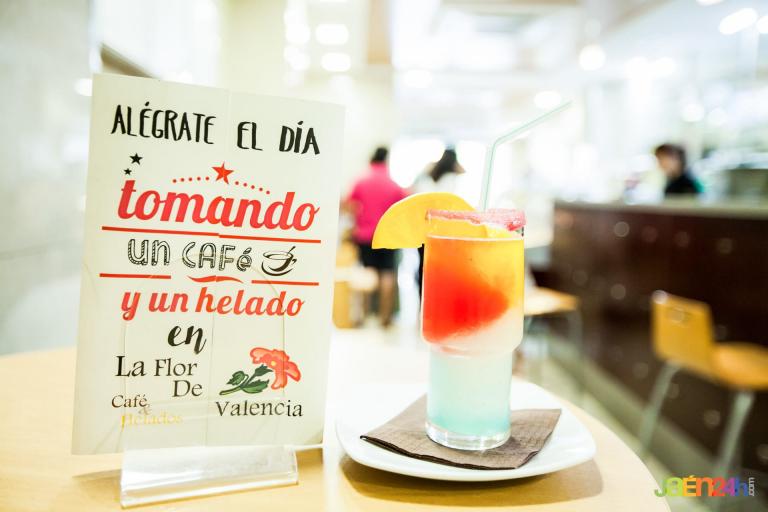 ALÉGRATE EL DÍA
tomando
UN CAFÉ
y un helado
en
La Flor
De
Valencia
Café
&
Helados
JAÉN24h.com